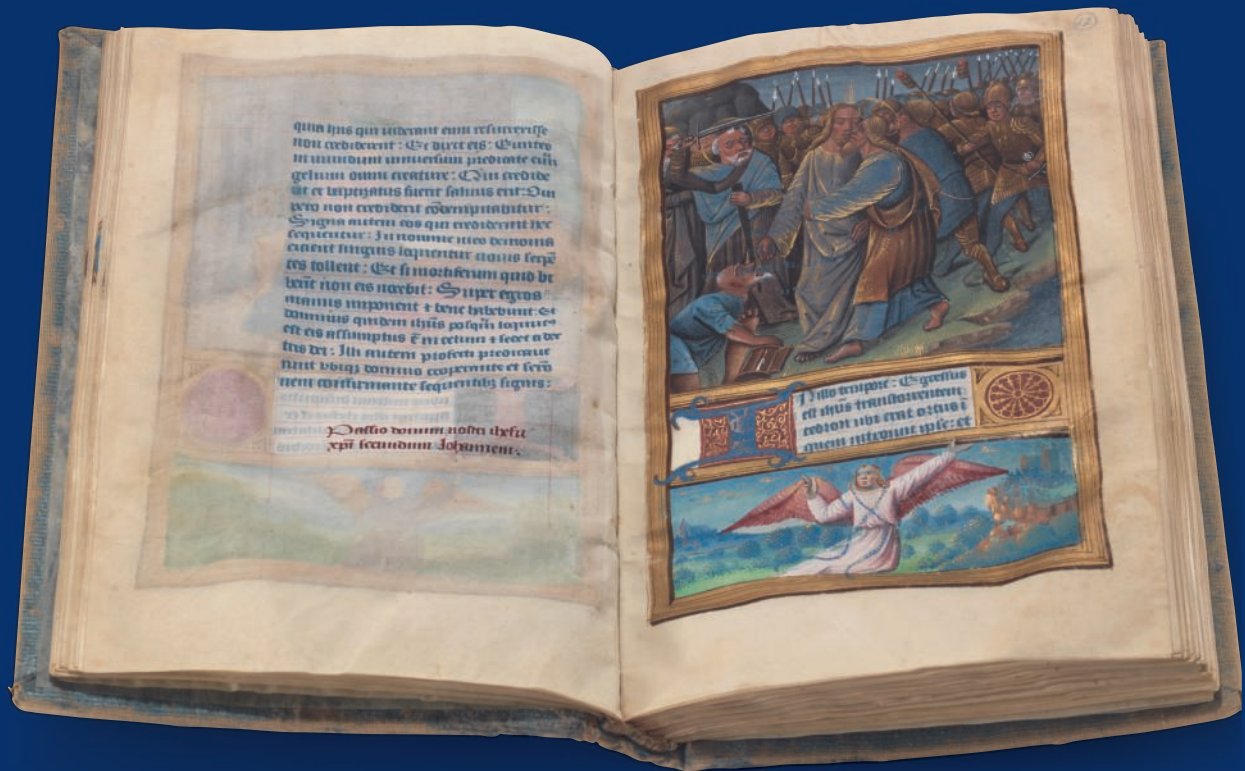 quia hiis qui uiderant eum resurrexisse
non crediderunt: Et dixit eis: Euntes
in mundum uniuersum predicate euā
gelium omni creature: Qui credide
rit et baptizatus fuerit saluus erit: Qui
vero non crediderit cōdempnabitur:
Signa autem eos qui crediderint hec
sequentur: In nomine meo demonia
eicient linguis loquentur nouis serpē
tes tollent: Et si mortiferum quid bi
berīt non eis nocebit: Super egros
manus imponent ⁊ bene habebunt: Et
dominus quidem ihūs postq̄m locutus
est eis assumptus ē in celum ⁊ sedet a dex
tris dei: Illi autem profecti predicaue
runt vbiq̄ domino cooperante et sermo
nem confirmante sequentibꝫ signis:
Passio domini nostri ihesu
xp̄i secundum Johannem.
12
In illo tempore: Egressus
est ihūs trans torrentem
cedron ubi erat ortus ī
quem introiuit ipse: et